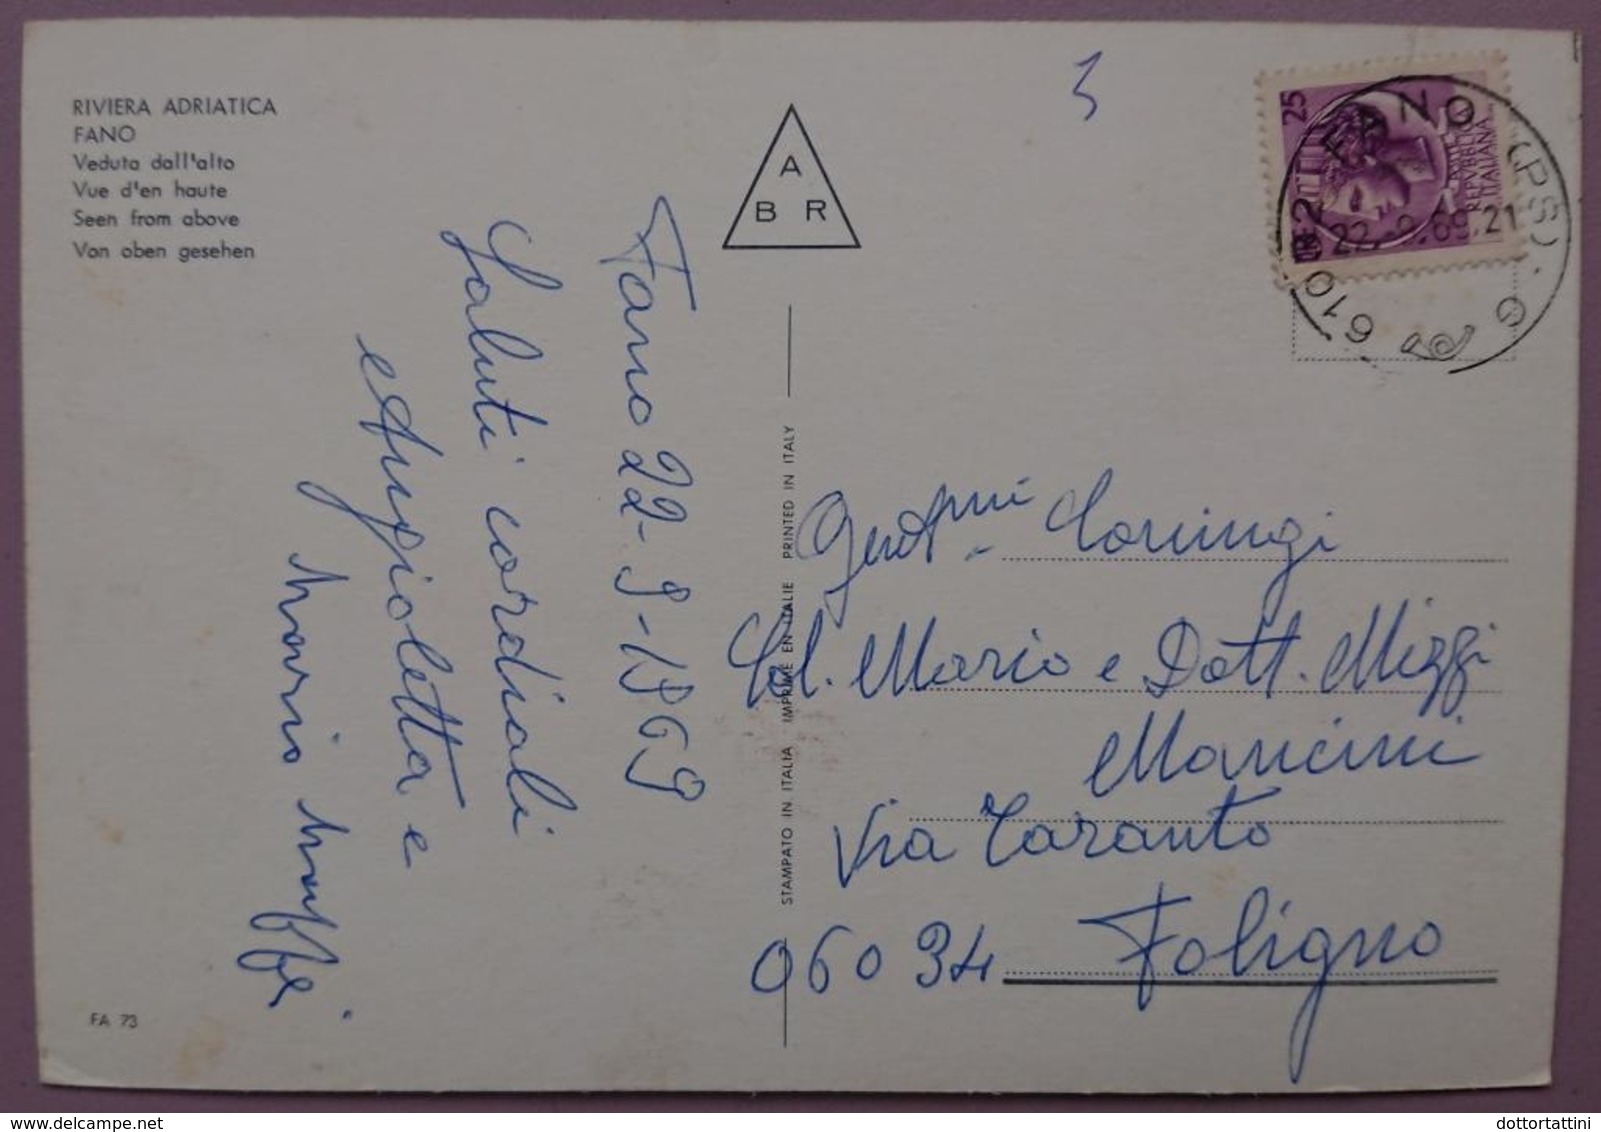 RIVIERA ADRIATICA
FANO
Veduta dall'alto
Vue d'en haute
Seen from above
Von oben gesehen
A
B R
25
POSTE
REPVBBLICA
ITALIANA
FANO (PS) · G
22.9.69.21
610
Fano 22-9-1969
Saluti cordiali
e Augioletta e
Mario
STAMPATO IN ITALIA IMPRIMÉ EN ITALIE PRINTED IN ITALY
Coniugi
Col. Mario e Dott. Mizzi
Mancini
Via Taranto
06034 Foligno
FA 73
dottortattini